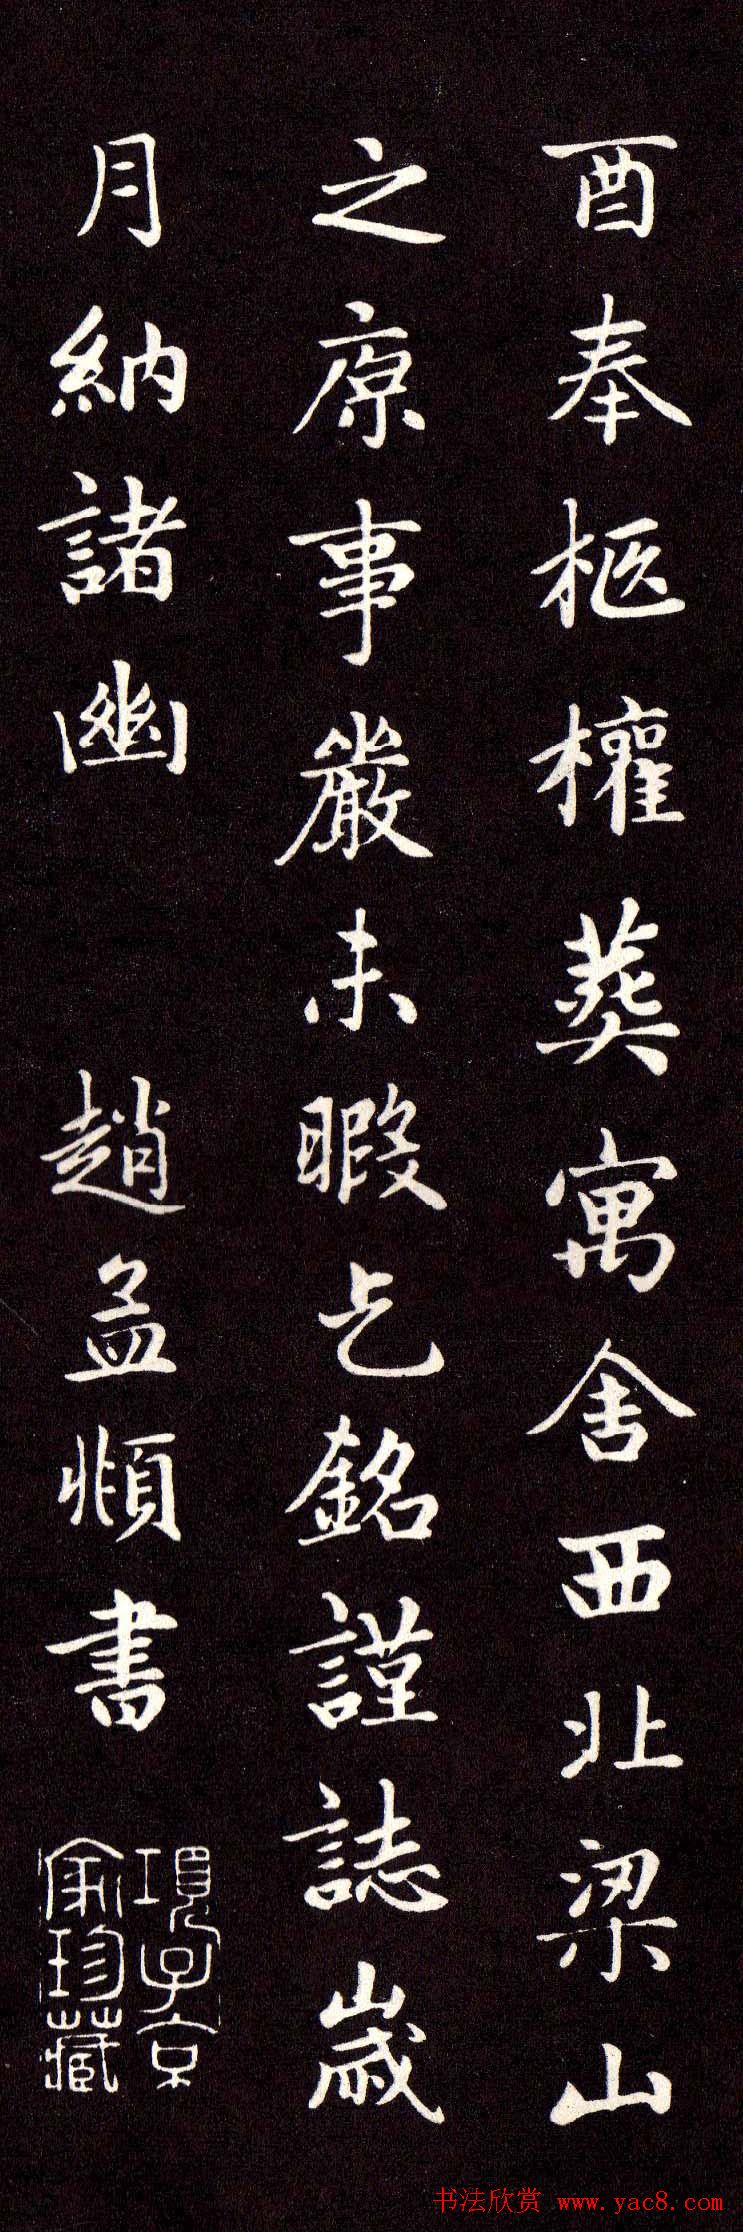 酉奉柩權葬寓舍西北梁山
之原事嚴未暇乞銘謹誌歲
月納諸幽
趙孟頫書
項子京
家珍藏
书法欣赏 www.yac8.com